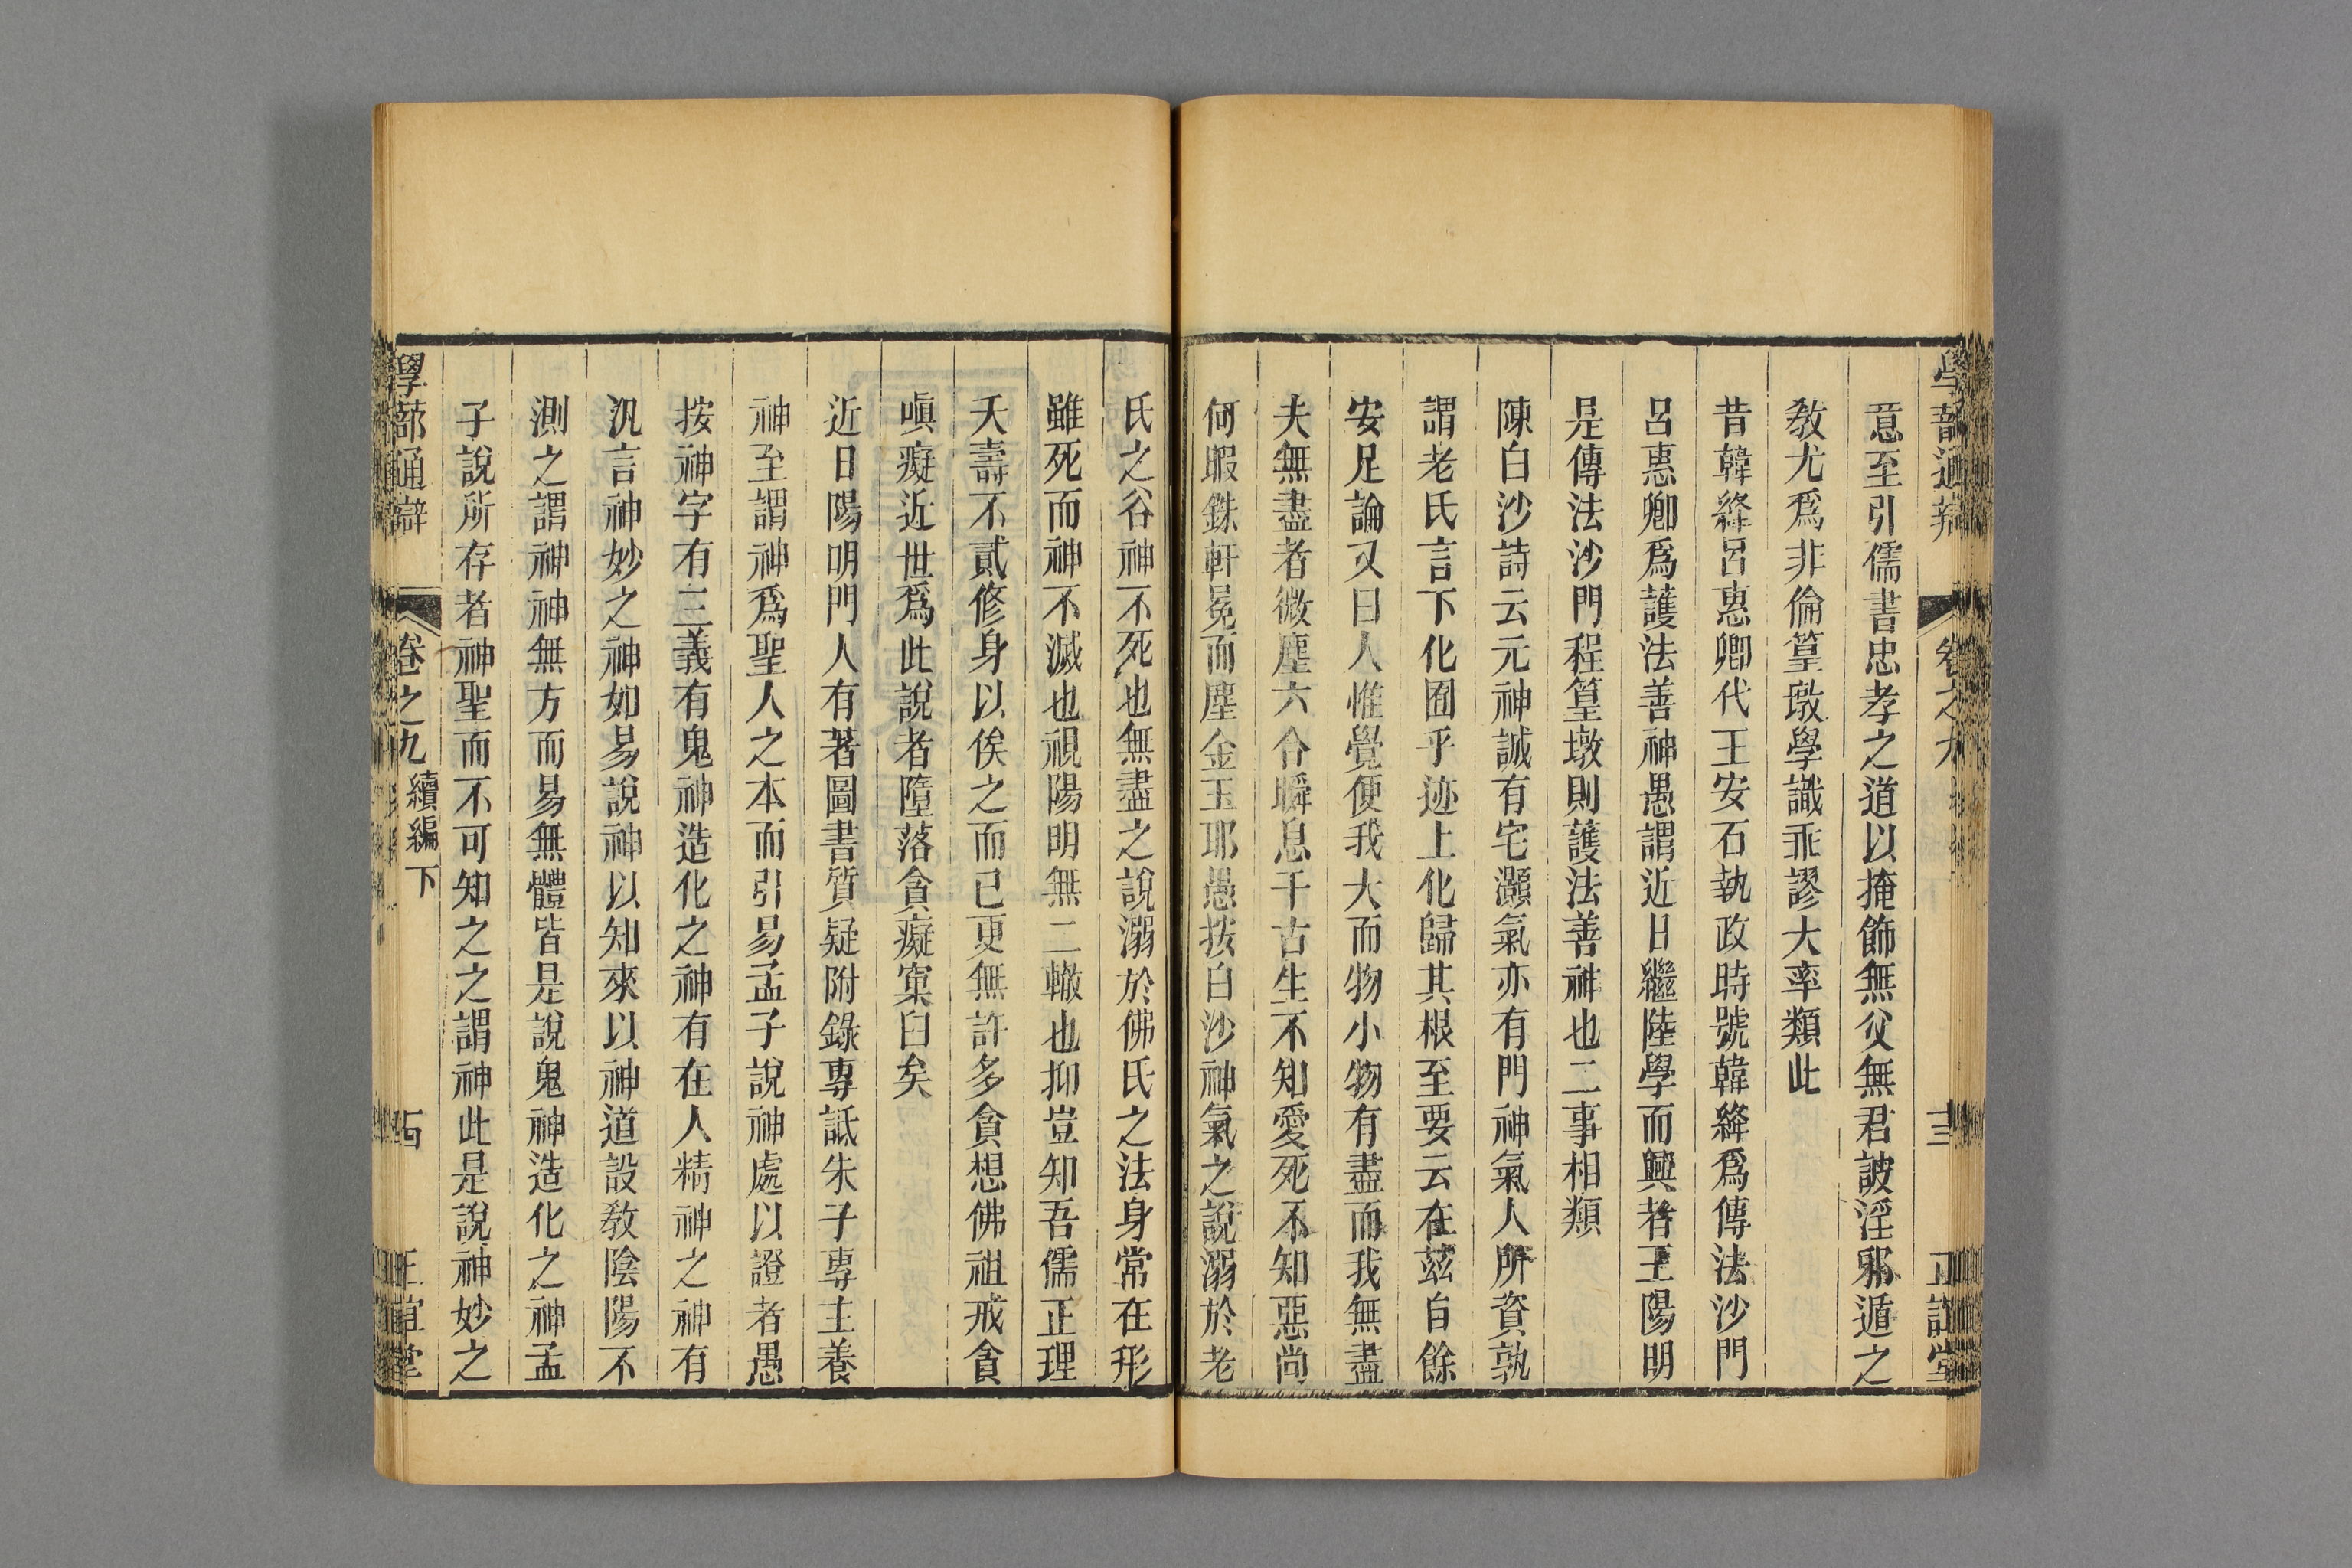 學蔀通辨 卷之九 十三 正誼堂
意至引儒書忠孝之道以掩飾無父無君詖淫邪遁之
教尤爲非倫篁墩學識乖謬大率類此
昔韓絳呂惠卿代王安石執政時號韓絳爲傳法沙門
呂惠卿爲護法善神愚謂近日繼陸學而興者王陽明
是傳法沙門程篁墩則護法善神也二事相類
陳白沙詩云元神誠有宅灝氣亦有門神氣人所資孰
謂老氏言下化囿乎迹上化歸其根至要云在茲自餘
安足論又曰人惟覺便我大而物小物有盡而我無盡
夫無盡者微塵六合瞬息千古生不知愛死不知惡尚
何暇銖軒冕而塵金玉耶愚按白沙神氣之說溺於老
氏之谷神不死也無盡之說溺於佛氏之法身常在形
雖死而神不滅也視陽明無二轍也抑豈知吾儒正理
夭壽不貳修身以俟之而已更無許多貪想佛祖戒貪
嗔癡近世爲此說者墮落貪癡窠臼矣
近日陽明門人有著圖書質疑附錄專詆朱子專主養
神至謂神爲聖人之本而引易孟子說神處以證者愚
按神字有三義有鬼神造化之神有在人精神之神有
汎言神妙之神如易說神以知來以神道設教陰陽不
測之謂神神無方而易無體皆是說鬼神造化之神孟
子說所存者神聖而不可知之之謂神此是說神妙之
學蔀通辯 卷之九 續編下 十四 正誼堂